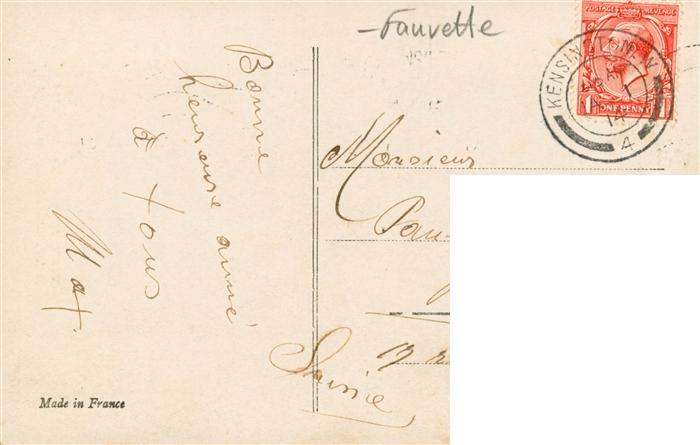 -Fauvette
POSTAGE REVENUE
ONE PENNY
KENSINGTON. W.
14
4
Bonne
heureuse anné
à tous
Max.
Monsieur
Suisse
Made in France